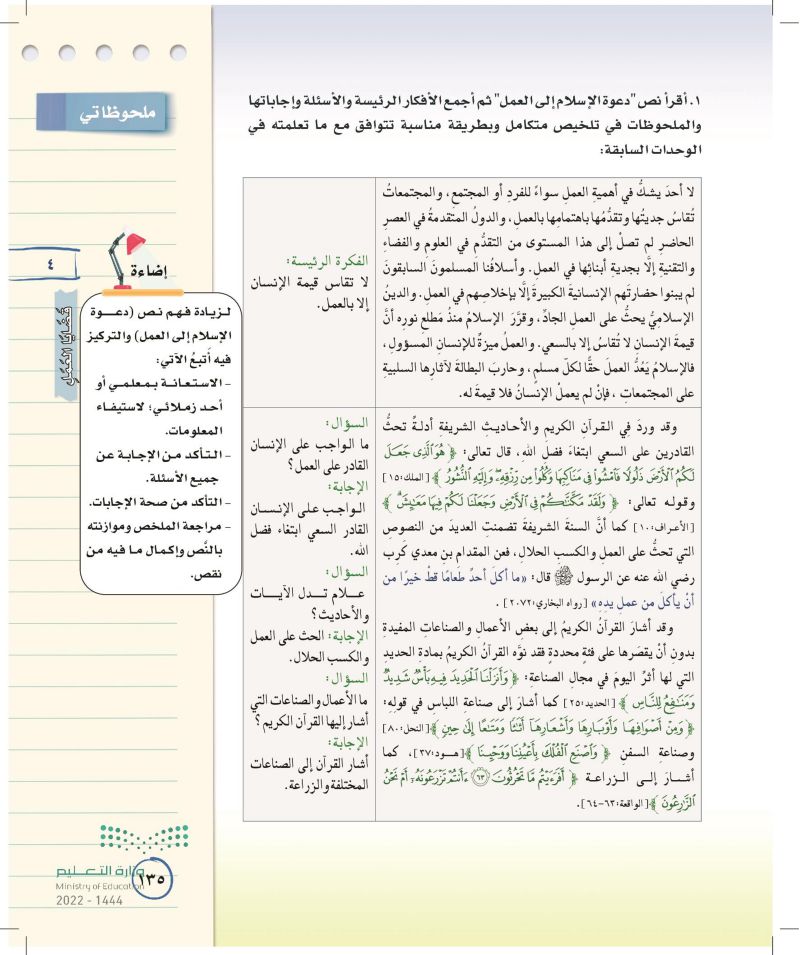 ١. أقرأ نص "دعوة الإسلام إلى العمل" ثم أجمع الأفكار الرئيسة والأسئلة وإجاباتها
والملحوظات في تلخيص متكامل وبطريقة مناسبة تتوافق مع ما تعلمته في
الوحدات السابقة:
لا أحدَ يشكُّ في أهميةِ العملِ سواءً للفردِ أو المجتمعِ، والمجتمعاتُ
تُقاسُ جديتُها وتقدُّمُها باهتمامِها بالعملِ، والدولُ المتقدمةُ في العصرِ
الحاضرِ لم تصلْ إلى هذا المستوى من التقدُّم في العلوم والفضاءِ
والتقنيةِ إلَّا بجديةِ أبنائِها في العملِ. وأسلافُنا المسلمونَ السابقونَ
لم يبنوا حضارتَهم الإنسانيةَ الكبيرةَ إلَّا بإخلاصِهم في العملِ. والدينُ
الإسلاميُّ يحثُّ على العملِ الجادِّ، وقرَّرَ الإسلامُ منذُ مَطلعِ نورِه أنَّ
قيمةَ الإنسانِ لا تُقاسُ إلا بالسعي. والعملُ ميزةٌ للإنسانِ المسؤولِ،
فالإسلامُ يَعُدُّ العملَ حقًّا لكلِّ مسلمٍ، وحاربَ البطالةَ لآثارِها السلبيةِ
على المجتمعاتِ، فإنْ لم يعملْ الإنسانُ فلا قيمةَ له.
الفكرة الرئيسة:
لا تقاس قيمة الإنسان
إلا بالعمل.
وقد وردَ في القرآنِ الكريم والأحاديثِ الشريفةِ أدلةٌ تحثُّ
القادرين على السعي ابتغاءَ فضلِ الله، قال تعالى: ﴿ هُوَ ٱلَّذِى جَعَلَ
لَكُمُ ٱلْأَرْضَ ذَلُولًا فَٱمْشُوا۟ فِى مَنَاكِبِهَا وَكُلُوا۟ مِن رِّزْقِهِۦ وَإِلَيْهِ ٱلنُّشُورُ ﴾[الملك:١٥]
وقوله تعالى: ﴿ وَلَقَدْ مَكَّنَّـٰكُمْ فِى ٱلْأَرْضِ وَجَعَلْنَا لَكُمْ فِيهَا مَعَـٰيِشَ ﴾
[الأعراف:١٠] كما أنَّ السنةَ الشريفةَ تضمنتِ العديدَ من النصوصِ
التي تحثُّ على العملِ والكسبِ الحلالِ، فعن المقدام بنِ معدي كَرِب
رضي الله عنه عن الرسول ﷺ قال: «ما أكلَ أحدٌ طعامًا قطُّ خيرًا من
أنْ يأكلَ من عملِ يدِهِ» [رواه البخاري:٢٠٧٢] .
وقد أشارَ القرآنُ الكريمُ إلى بعضِ الأعمالِ والصناعاتِ المفيدةِ
بدونِ أنْ يقصرَها على فئةٍ محددةٍ فقد نوَّه القرآنُ الكريمُ بمادةِ الحديدِ
التي لها أثرٌ اليومَ في مجالِ الصناعةِ: ﴿ وَأَنزَلْنَا ٱلْحَدِيدَ فِيهِ بَأْسٌ شَدِيدٌ
وَمَنَـٰفِعُ لِلنَّاسِ ﴾[الحديد:٢٥] كما أشارَ إلى صناعةِ اللباسِ في قولِهِ:
﴿ وَمِنْ أَصْوَافِهَا وَأَوْبَارِهَا وَأَشْعَارِهَآ أَثَـٰثًا وَمَتَـٰعًا إِلَىٰ حِينٍ ﴾[النحل:٨٠]
وصناعةِ السفنِ ﴿ وَٱصْنَعِ ٱلْفُلْكَ بِأَعْيُنِنَا وَوَحْيِنَا ﴾[هود:٣٧]، كما
أشارَ إلى الزراعةِ ﴿ أَفَرَءَيْتُم مَّا تَحْرُثُونَ ۝٦٣ ءَأَنتُمْ تَزْرَعُونَهُۥٓ أَمْ نَحْنُ
ٱلزَّٰرِعُونَ ﴾[الواقعة:٦٣-٦٤].
السؤال:
ما الواجب على الإنسان
القادر على العمل؟
الإجابة:
الواجب على الإنسان
القادر السعي ابتغاء فضل
الله.
السؤال:
علام تدل الآيات
والأحاديث؟
الإجابة: الحث على العمل
والكسب الحلال.
السؤال:
ما الأعمال والصناعات التي
أشار إليها القرآن الكريم؟
الإجابة:
أشار القرآن إلى الصناعات
المختلفة والزراعة.
ملحوظاتي
٤
قضايا العمل
إضاءة
لزيادة فهم نص (دعوة
الإسلام إلى العمل) والتركيز
فيه أتبعُ الآتي:
- الاستعانة بمعلمي أو
أحد زملائي؛ لاستيفاء
المعلومات.
- التأكد من الإجابة عن
جميع الأسئلة.
- التأكد من صحة الإجابات.
- مراجعة الملخص وموازنته
بالنَّص وإكمال ما فيه من
نقص.
وزارة التعليم
Ministry of Education
2022 - 1444
١٣٥